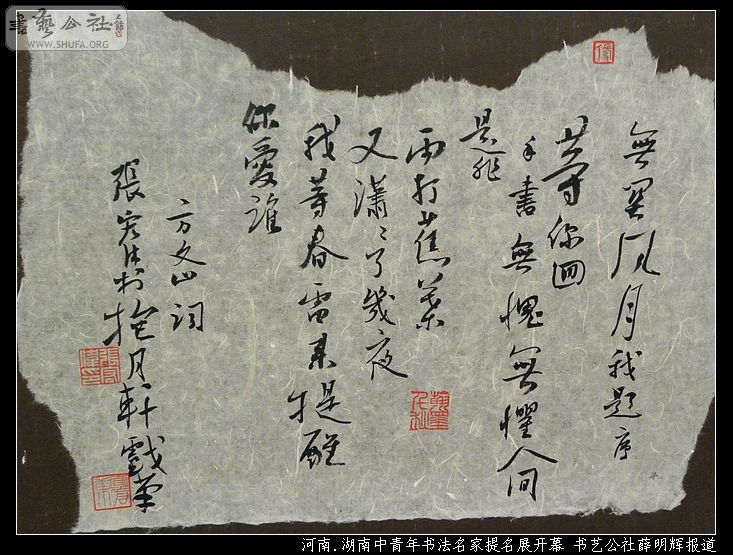 書藝公社
WWW.SHUFA.ORG
無關风月我題序
等你回
手書無愧無懼人間
是非
雨打蕉葉
又瀟〻了幾夜
我等春雷来提醒
你愛誰
方文山詞
張宏伟於抱月軒戲筆
河南.湖南中青年书法名家提名展开幕 书艺公社薛明辉报道